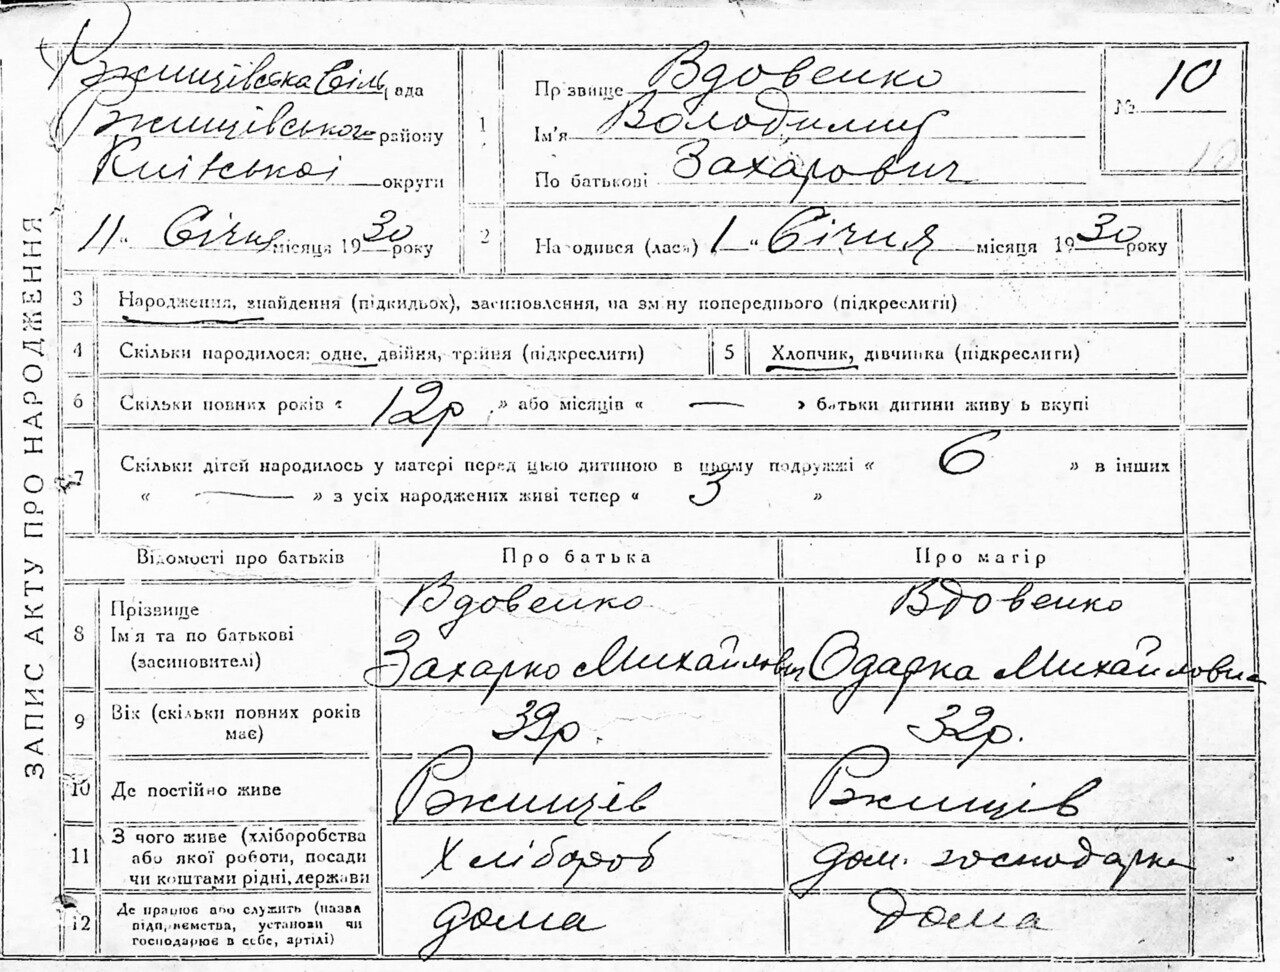 ЗАПИС АКТУ ПРО НАРОДЖЕННЯ
Ржищівська Сільрада
Ржищівського району
Київської округи
11 " Січня місяця 1930 року
1
Прізвище Вдовенко
Ім'я Володимир
По батькові Захарович
№ 10
10
2
Народився (лася) 1 " Січня місяця 1930 року
3 Народження, знайдення (підкидьох), засиновлення, на зміну попереднього (підкреслити)
4 Скільки народилося: одне, двійня, трійня (підкреслити)
5 Хлопчик, дівчинка (підкреслити)
6 Скільки повних років « 12р » або місяців « — » батьки дитини живуть вкупі
7 Скільки дітей народилось у матері перед цією дитиною в цьому подружжі « 6 » в інших
« — » з усіх народжених живі тепер « 3 »
Відомості про батьків Про батька Про матір
8 Прізвище
Ім'я та по батькові
(засиновителі)
Вдовенко
Захарко Михайлович
Вдовенко
Одарка Михайловна
9 Вік (скільки повних років
має)
39р.
32р.
10 Де постійно живе Ржищів Ржищів
11 З чого живе (хліборобства
або якої роботи, посади
чи коштами рідні, держави
Хлібороб
дом. господарка
12 Де працює або служить (назва
підприємства, установи чи
господарює в себе, артілі)
дома
дома